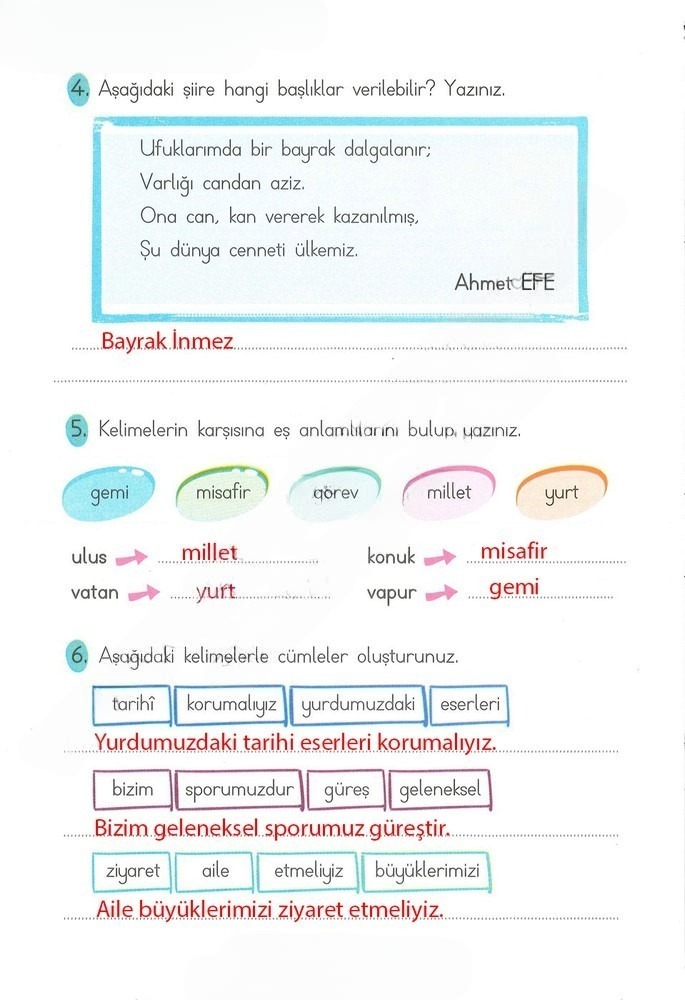 4. Aşağıdaki şiire hangi başlıklar verilebilir? Yazınız.
Ufuklarımda bir bayrak dalgalanır;
Varlığı candan aziz.
Ona can, kan vererek kazanılmış,
Şu dünya cenneti ülkemiz.
Ahmet EFE
Bayrak İnmez
5. Kelimelerin karşısına eş anlamlılarını bulup yazınız.
gemi misafir görev millet yurt
ulus millet konuk misafir
vatan yurt vapur gemi
6. Aşağıdaki kelimelerle cümleler oluşturunuz.
tarihî korumalıyız yurdumuzdaki eserleri
Yurdumuzdaki tarihi eserleri korumalıyız.
bizim sporumuzdur güreş geleneksel
Bizim geleneksel sporumuz güreştir.
ziyaret aile etmeliyiz büyüklerimizi
Aile büyüklerimizi ziyaret etmeliyiz.